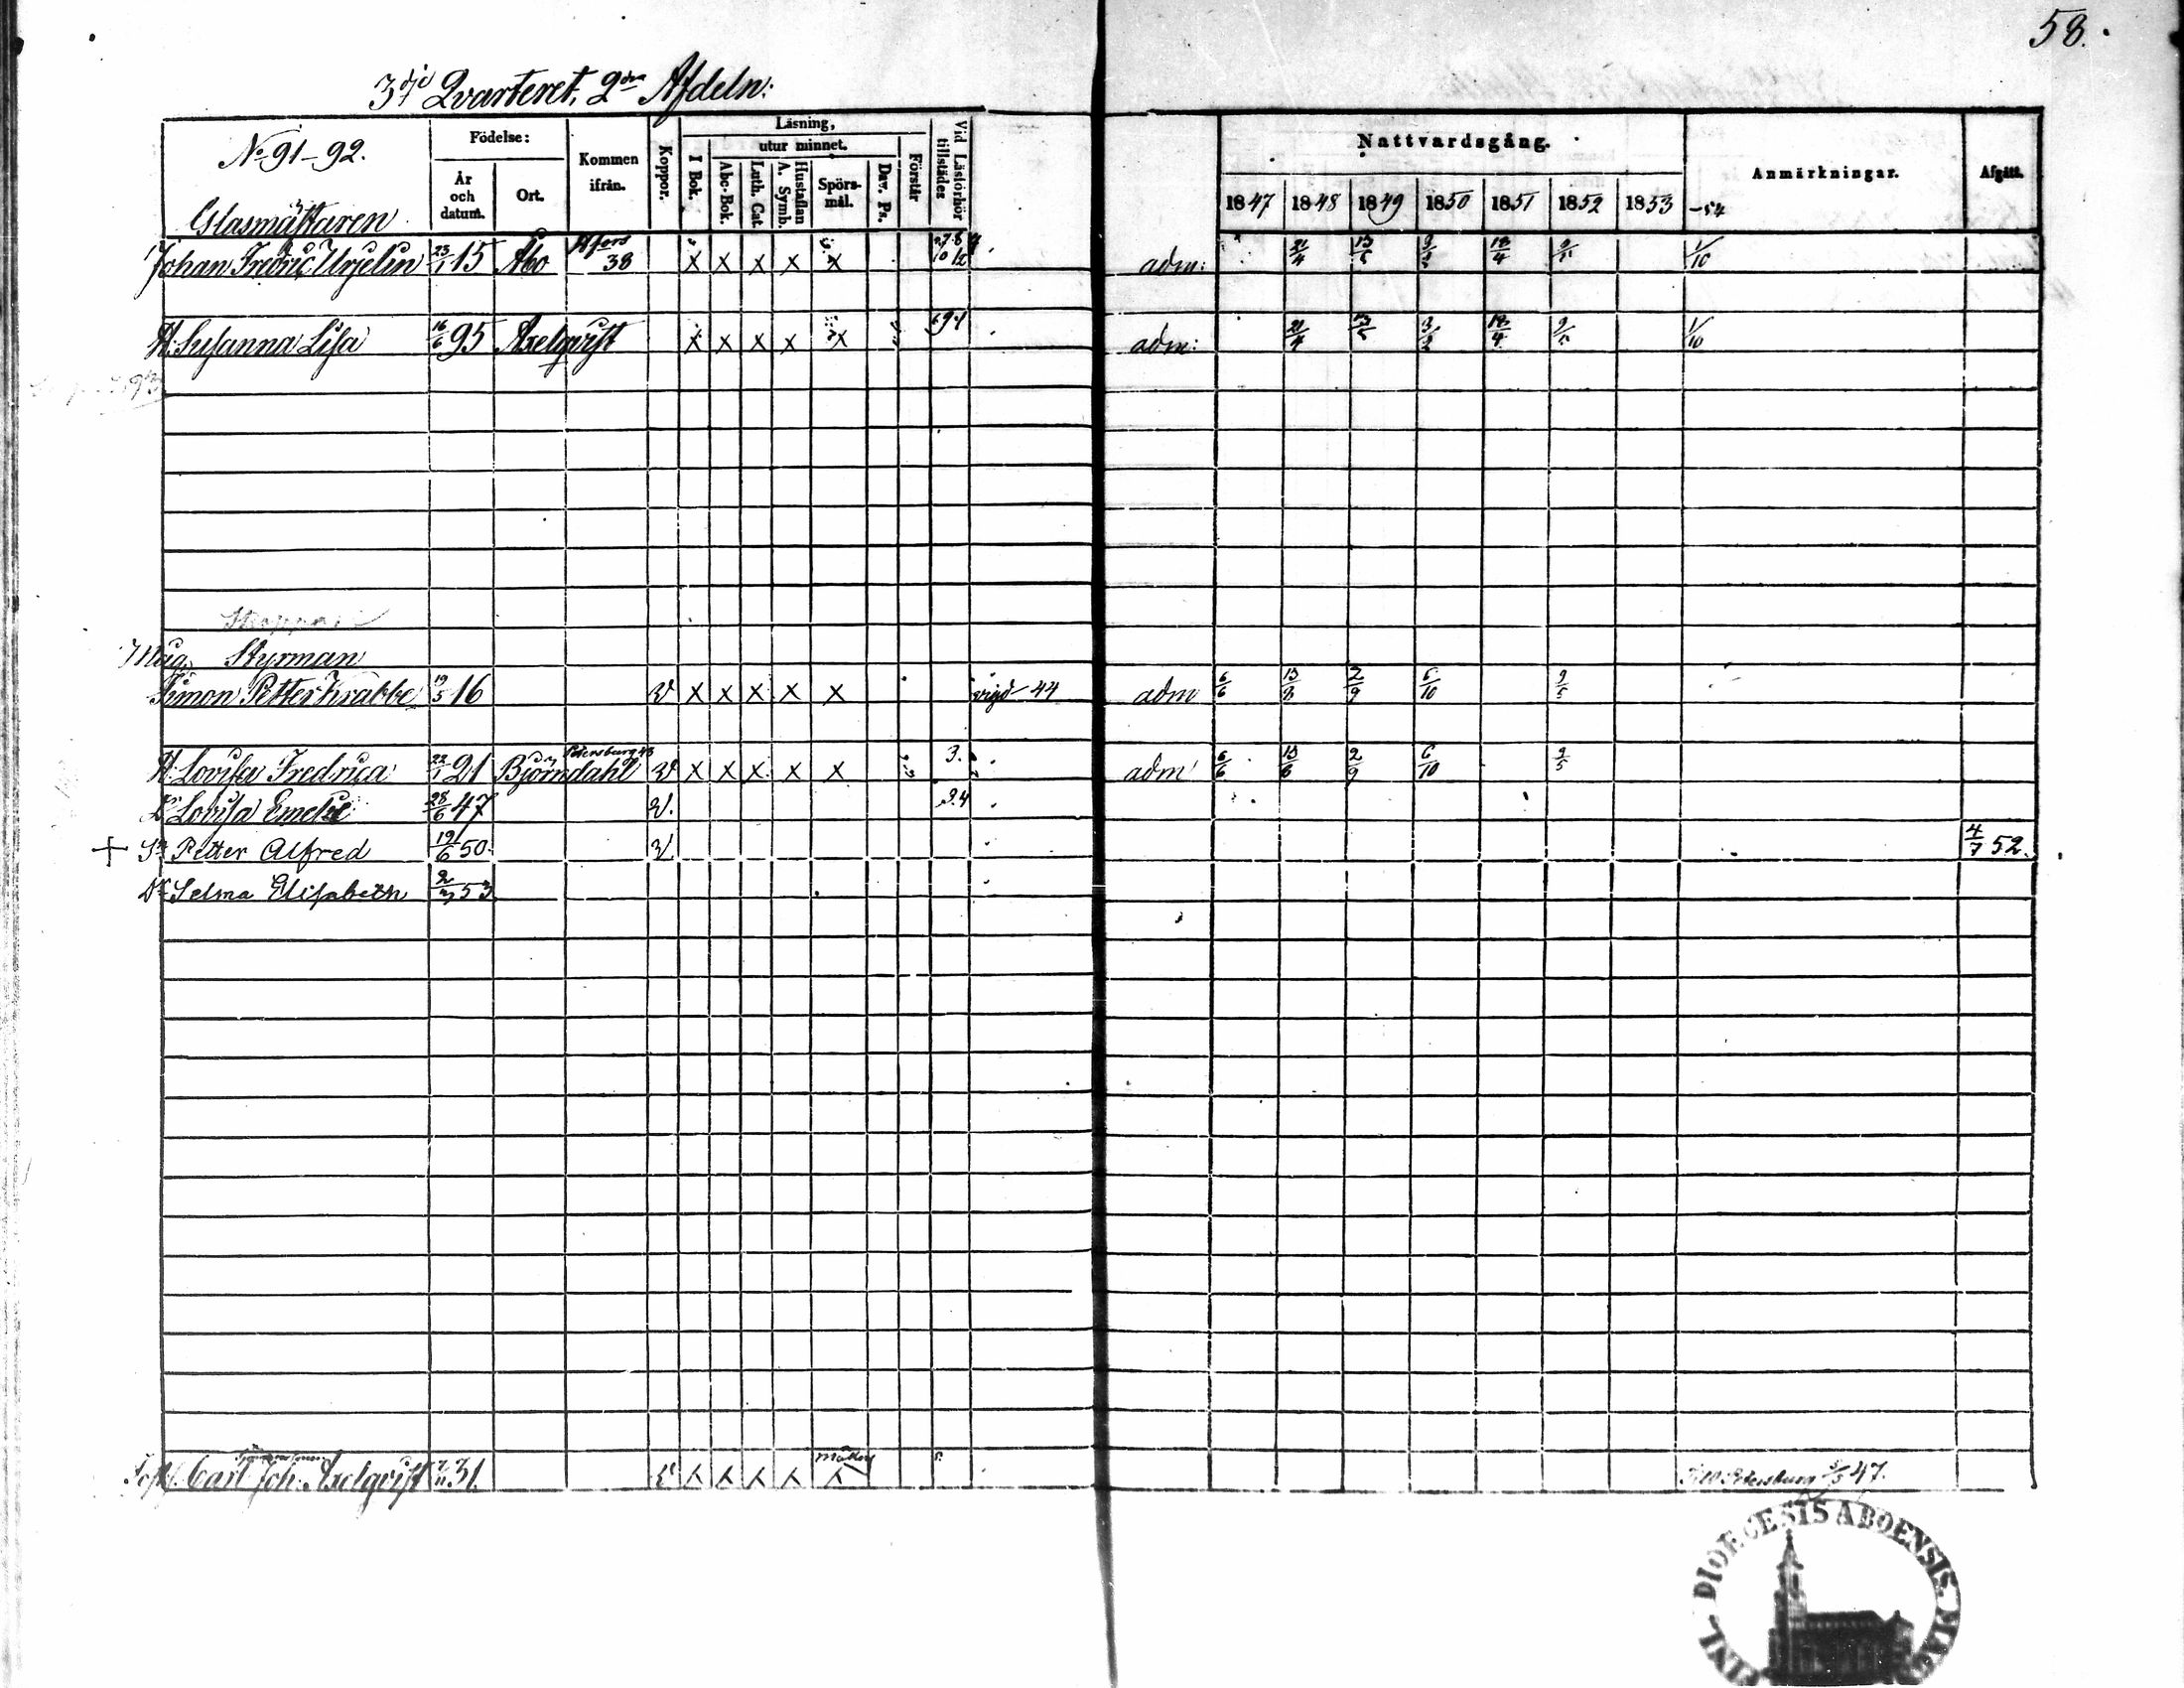 58.
3dje Qvarteret, 2dra Afdeln:
No 91-92.
Födelse:
År och datum.
Ort.
Kommen ifrån.
Koppor.
Läsning,
I Bok.
utur minnet.
Abc-Bok.
Luth. Cat.
Hustaflan A. Symb.
Spörsmål.
Dav. Ps.
Förstår
Vid Läsförhör tillstädes
Nattvardsgång.
1847 1848 1849 1850 1851 1852 1853 -54
Anmärkningar.
Afgått.
Glasmättaren
Johan Fredric Urjelin 23/1 15 Åbo Hfors 38 x x x x x adm: 21/4 18/4 1/10
H. Susanna Lisa 16/6 95 Axelqvist x x x x x adm: 21/4 18/4 1/10
Styrman
Simon Petter Krabbe 19/5 16 x x x x x vigd -44 adm 6/6 13/8 2/9 6/10 9/5
H. Lovisa Fredrica 22/1 21 Björndahl Petersburg 43 x x x x x 3. adm 6/6 13/8 2/9 6/10 9/5
Dr Lovisa Emelie 28/6 47 3.4
+ Sn Petter Alfred 19/6 50. 4/7 52.
Dr Selma Elisabeth 2/3 53
Carl Joh. Axelqvist 31. x x x x x Petersburg 47.
DIOECESIS ABOENSIS. MAG